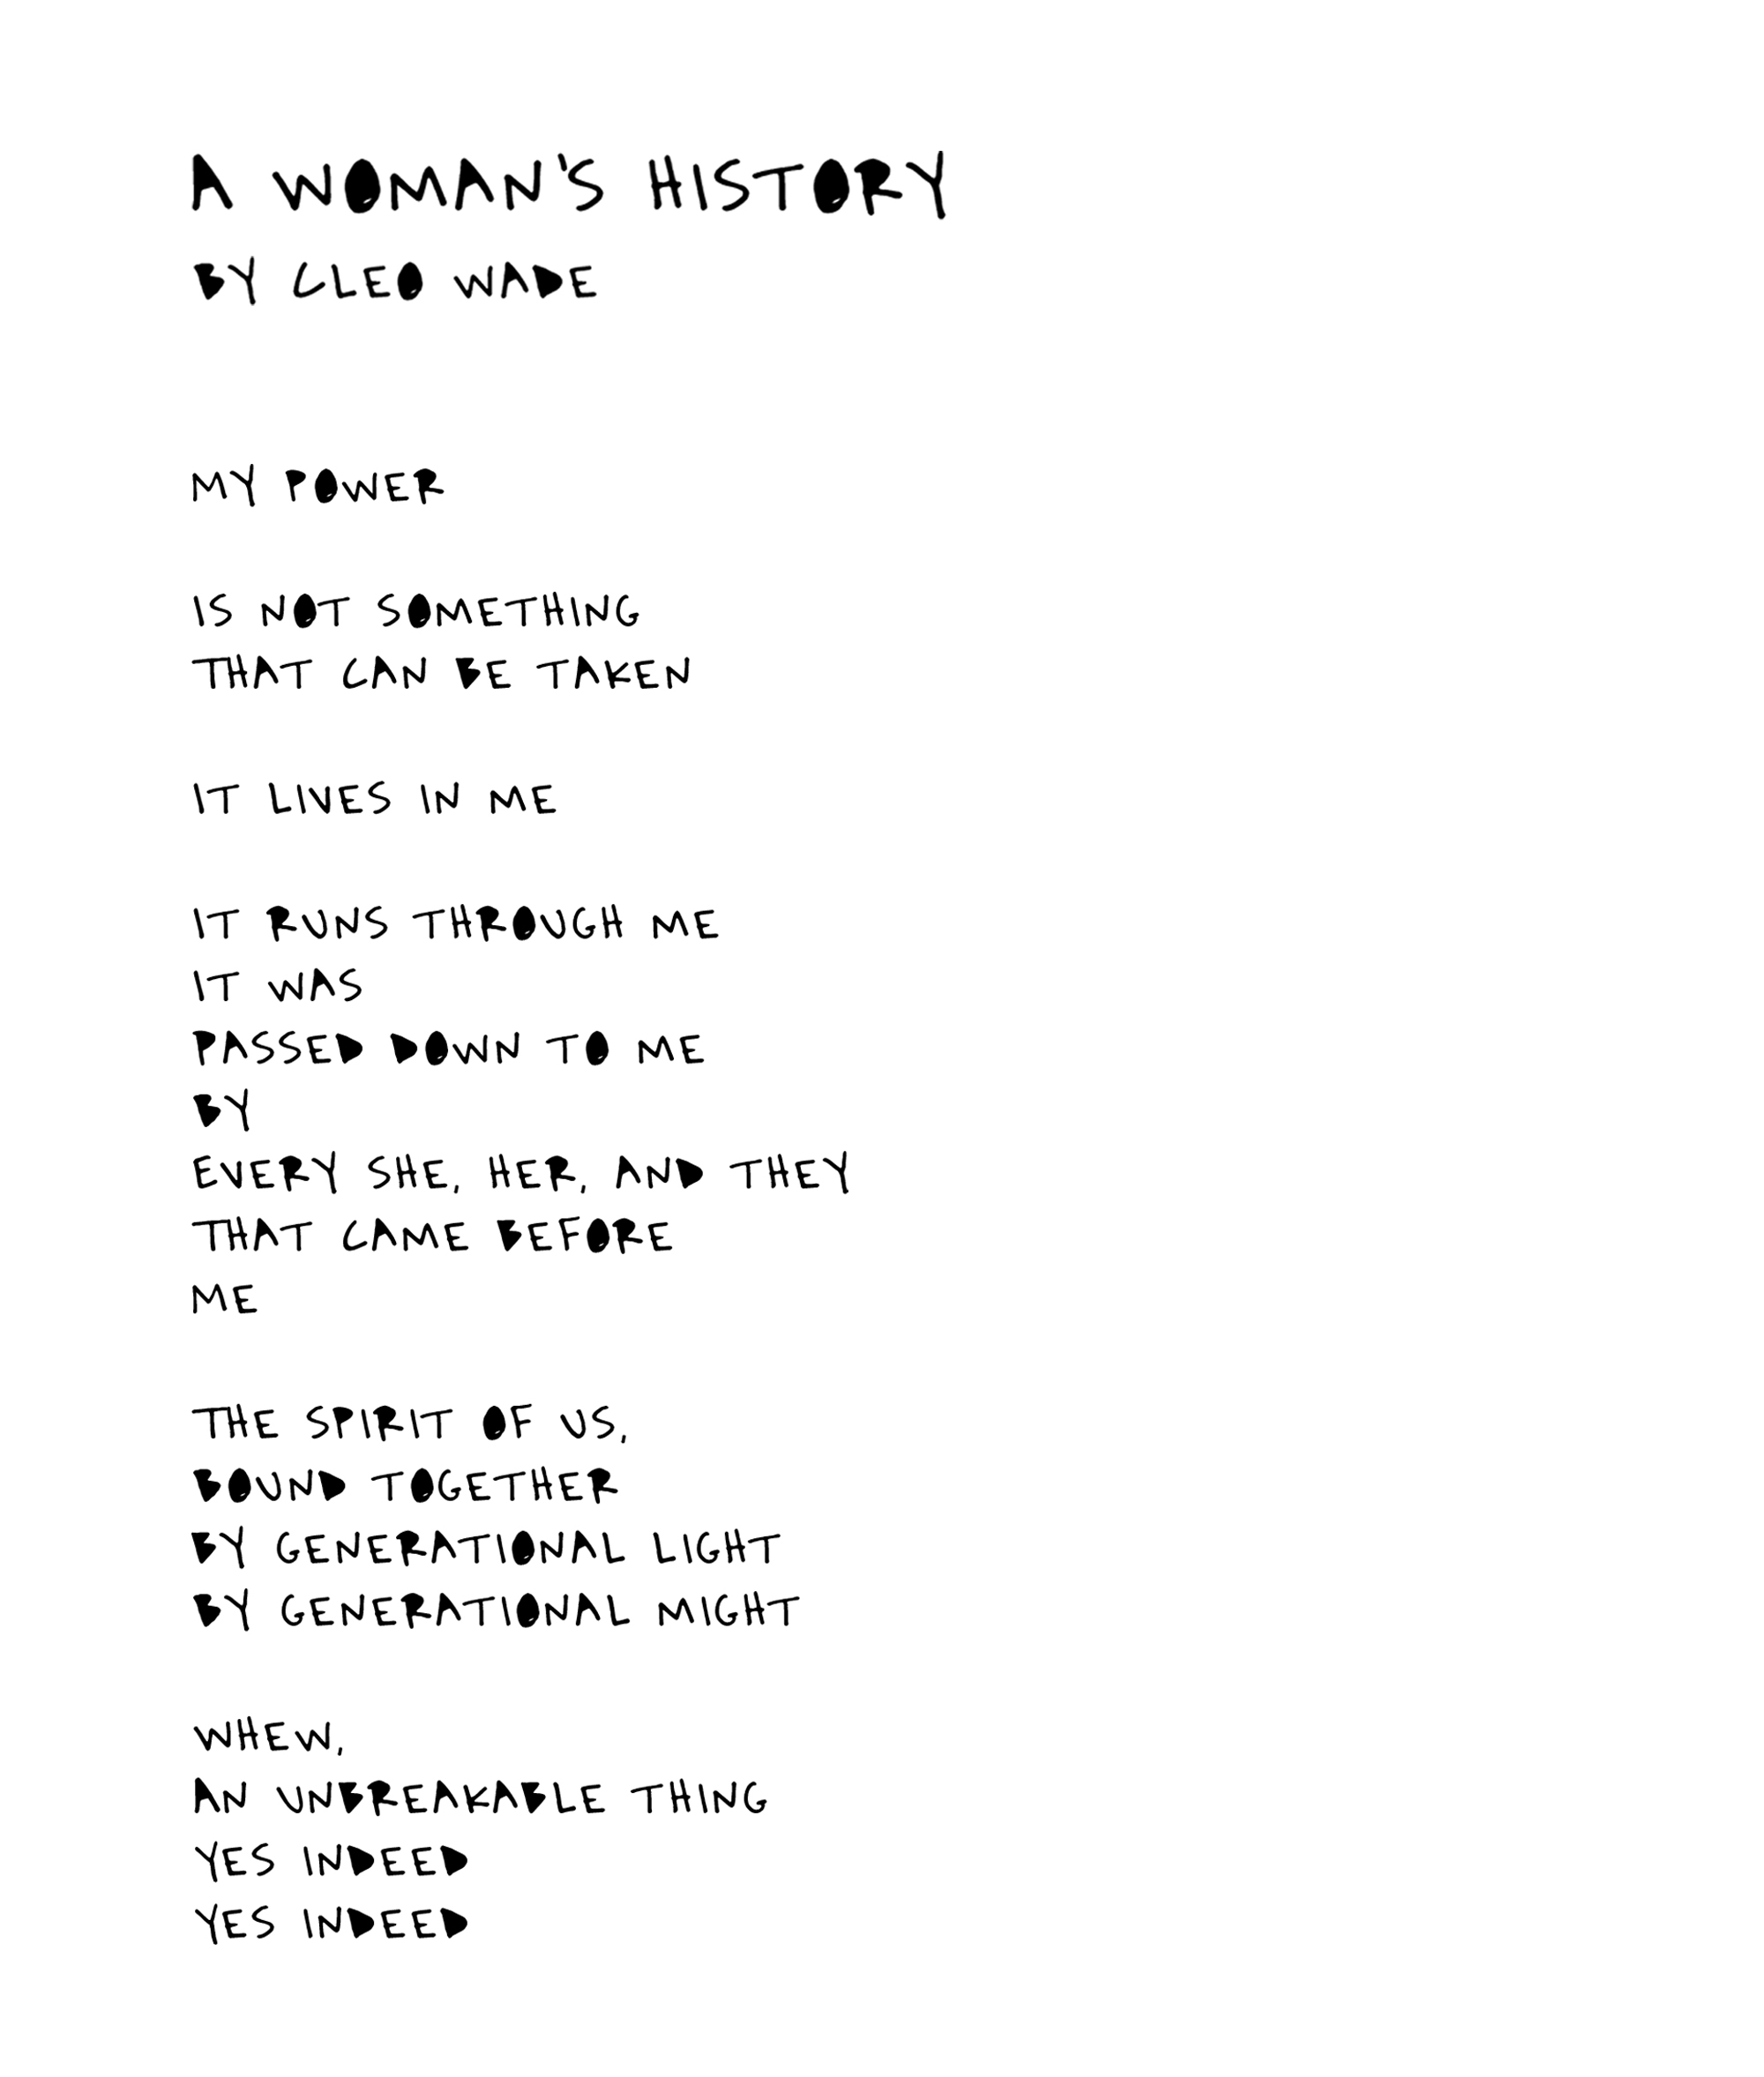 A WOMAN'S HISTORY
BY CLEO WADE
MY POWER
IS NOT SOMETHING
THAT CAN BE TAKEN
IT LIVES IN ME
IT RUNS THROUGH ME
IT WAS
PASSED DOWN TO ME
BY
EVERY SHE, HER, AND THEY
THAT CAME BEFORE
ME
THE SPIRIT OF US,
BOUND TOGETHER
BY GENERATIONAL LIGHT
BY GENERATIONAL MIGHT
WHEW,
AN UNBREAKABLE THING
YES INDEED
YES INDEED